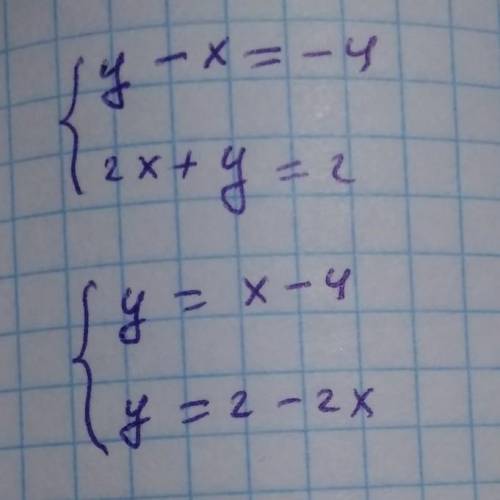 y - x = -4
2x + y = 2
y = x - 4
y = 2 - 2x